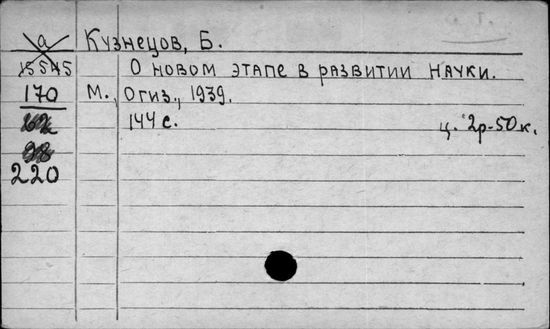 а Кузнецов, Б.
15545 О новом этапе в развитии науки.
170 М., Огиз., 1939.
144 с. ц. 2р-50к.
220